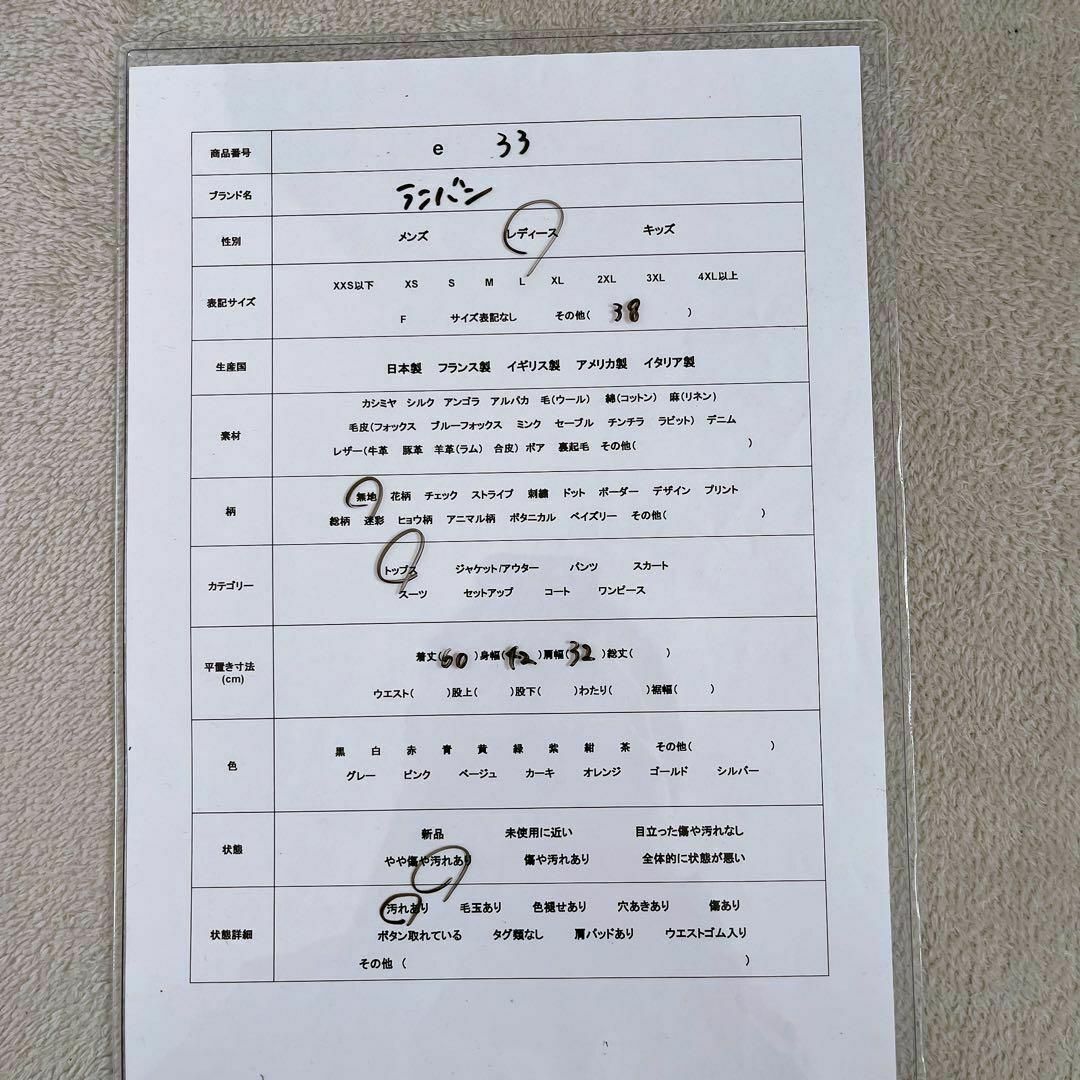 商品番号 e 33
ブランド名 ランバン
性別 メンズ レディース キッズ
表記サイズ XXS以下 XS S M L XL 2XL 3XL 4XL以上
F サイズ表記なし その他( 38 )
生産国 日本製 フランス製 イギリス製 アメリカ製 イタリア製
素材 カシミヤ シルク アンゴラ アルパカ 毛(ウール) 綿(コットン) 麻(リネン)
毛皮(フォックス ブルーフォックス ミンク セーブル チンチラ ラビット) デニム
レザー(牛革 豚革 羊革(ラム) 合皮) ボア 裏起毛 その他( )
柄 無地 花柄 チェック ストライプ 刺繍 ドット ボーダー デザイン プリント
総柄 迷彩 ヒョウ柄 アニマル柄 ボタニカル ペイズリー その他( )
カテゴリー トップス ジャケット/アウター パンツ スカート
スーツ セットアップ コート ワンピース
平置き寸法(cm) 着丈(60)身幅(42)肩幅(32)総丈( )
ウエスト( )股上( )股下( )わたり( )裾幅( )
色 黒 白 赤 青 黄 緑 紫 紺 茶 その他( )
グレー ピンク ベージュ カーキ オレンジ ゴールド シルバー
状態 新品 未使用に近い 目立った傷や汚れなし
やや傷や汚れあり 傷や汚れあり 全体的に状態が悪い
状態詳細 汚れあり 毛玉あり 色褪せあり 穴あきあり 傷あり
ボタン取れている タグ類なし 肩パッドあり ウエストゴム入り
その他 ( )